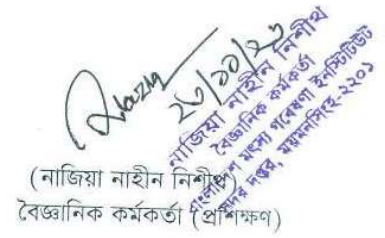 ২৮/১১/২৩
নাজিয়া নাহীন নিশীথ
বৈজ্ঞানিক কর্মকর্তা
বাংলাদেশ মৎস্য গবেষণা ইনস্টিটিউট
সদর দপ্তর, ময়মনসিংহ-২২০১
(নাজিয়া নাহীন নিশীথ)
বৈজ্ঞানিক কর্মকর্তা (প্রশিক্ষণ)